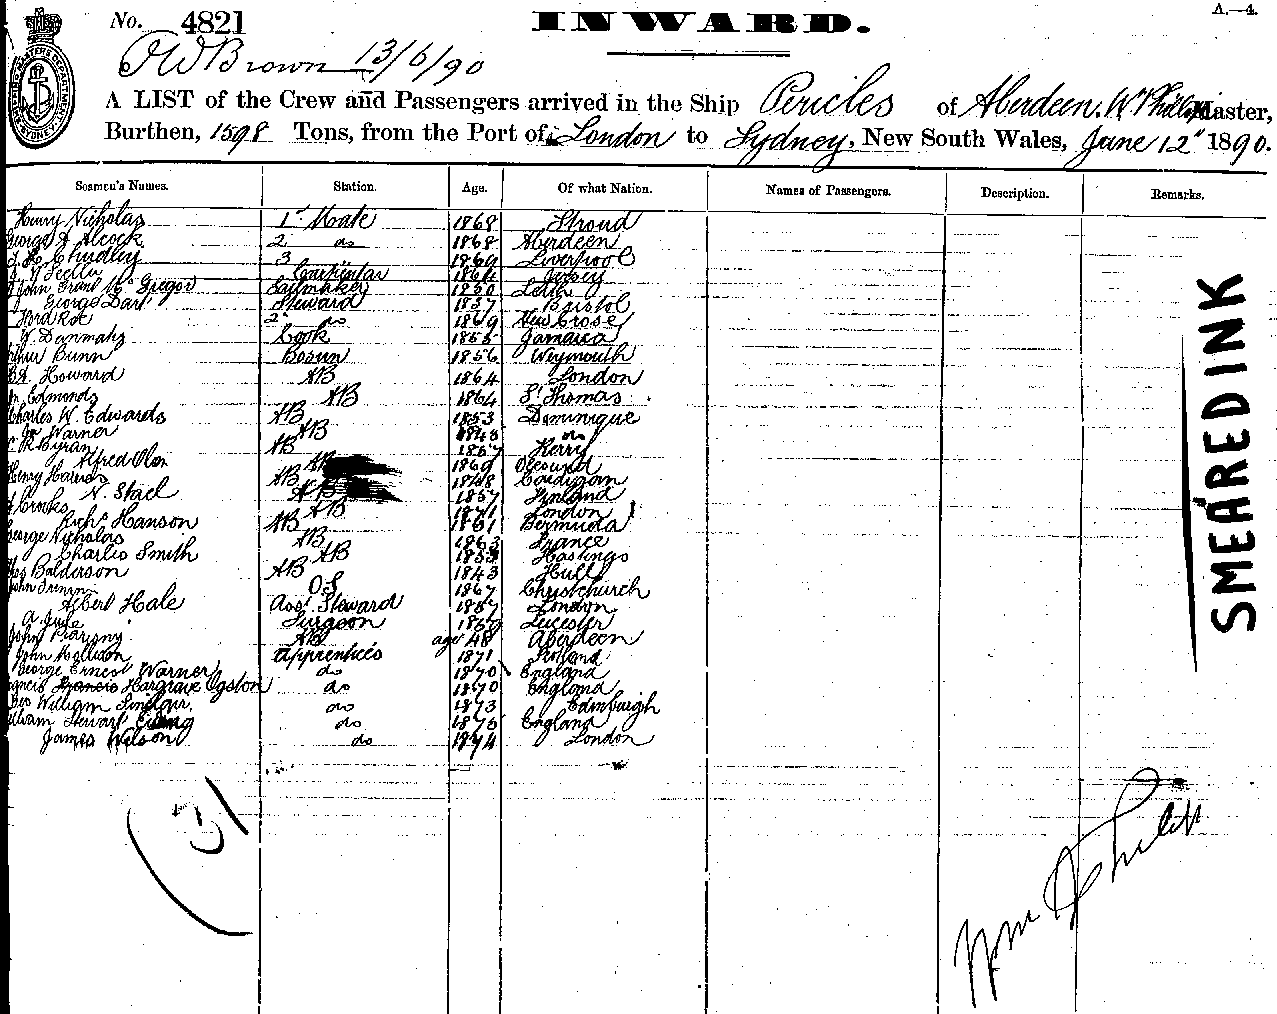 No. 4821 INWARD. A.—4.
Brown 13/6/90
A LIST of the Crew and Passengers arrived in the Ship Pericles of Aberdeen, Master,
Burthen, 1598 Tons, from the Port of London to Sydney, New South Wales, June 12" 1890.
Seamen's Names. Station. Age. Of what Nation. Names of Passengers. Description. Remarks.
Henry Nicholas 1st Mate 1868 Stroud
George A Alcock 2 do 1868 Aberdeen
Chudley 3 1869 Liverpool
Carpenter 1864 Jersey
John Grant McGregor Sailmaker 1830 Leith
George Dart Steward 1857 Bristol
2 do 1869 New Cross
Danmaly Cook 1855 Jamaica
Bunn Bosun 1856 Weymouth
Howard AB 1864 London
Edmonds AB 1864 St Thomas
Charles W. Edwards AB 1853 Dominique
Warner AB 1843 do
Byran AB 1867 Kerry
Alfred AB 1869
Henry Harries AB 1868 Cardigan
N. Stael AB 1857 Finland
Crooks AB 1871 London
Richd Hanson AB 1861 Bermuda
George Nicholas AB 1863 France
Charles Smith AB 1853 Hastings
Balderson AB 1843 Hull
John OS 1867 Christchurch
Albert Hale Asst Steward 1857 London
Surgeon Leicester
John AB age 48 Aberdeen
John apprentices 1871
George Ernest Warner do 1870 England
Francis Hargrave Ogston do 1870 England
William Sinclair do 1873 Edinburgh
William Stewart Ewing do 1875 England
James Wilson do 1874 London
31
SMEARED INK
Wm